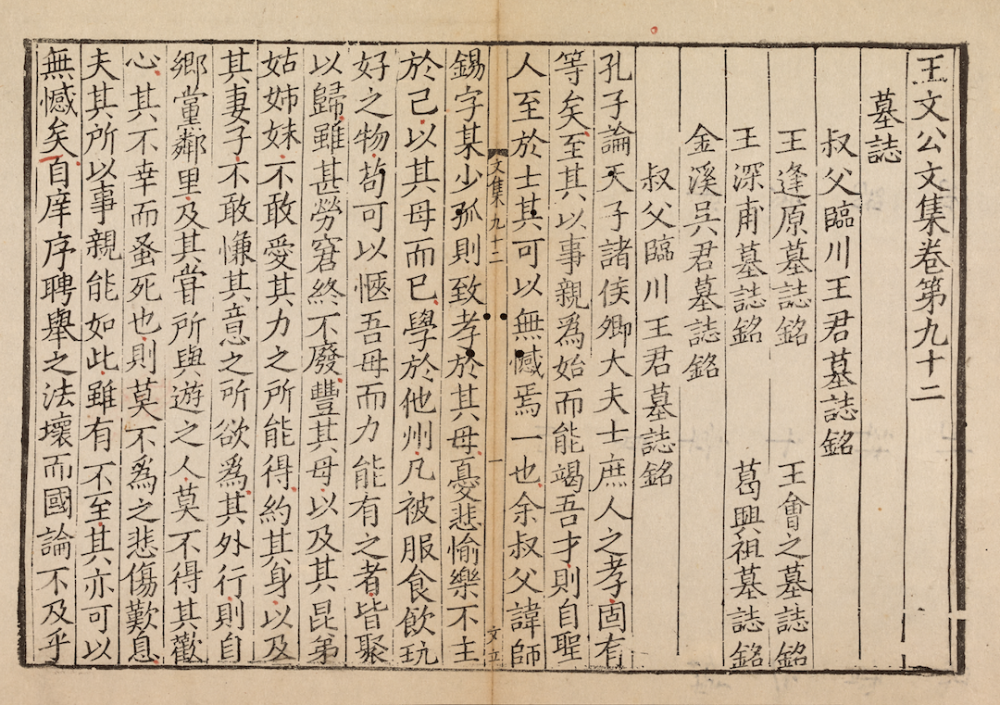 王文公文集卷第九十二
墓誌
叔父臨川王君墓誌銘
王逢原墓誌銘 王會之墓誌銘
王深甫墓誌銘 葛興祖墓誌銘
金溪吳君墓誌銘
叔父臨川王君墓誌銘
孔子論天子諸侯卿大夫士庶人之孝固有
等矣至其以事親爲始而能竭吾才則自聖
人至於士其可以無憾焉一也余叔父諱師
文集九十二 一 文立
錫字某少孤則致孝於其母憂悲愉樂不主
於己以其母而已學於他州凡被服食飲玩
好之物苟可以愜吾母而力能有之者皆聚
以歸雖甚勞窘終不廢豐其母以及其昆弟
姑姊妹不敢愛其力之所能得約其身以及
其妻子不敢慊其意之所欲爲其外行則自
鄉黨鄰里及其甞所與遊之人莫不得其歡
心其不幸而蚤死也則莫不爲之悲傷歎息
夫其所以事親能如此雖有不至其亦可以
無憾矣自庠序聘舉之法壞而國論不及乎